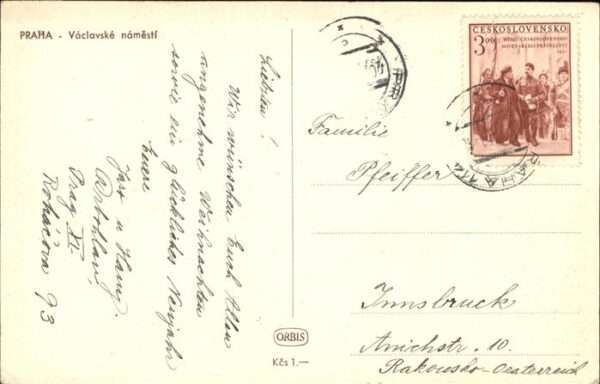 PRAHA - Václavské náměstí
Lieben!
Wir wünschen Euch Allen
angenehme Weihnachten
sowie ein glückliches Neujahr
Euere
Jar u Hany
Prag XI.
Roháčova 93
ČESKOSLOVENSKO
3 Kčs
PRAHA 114
Familie
Pfeiffer
Innsbruck
Anichstr. 10.
Rakousko-Oesterreich
ORBIS
Kčs 1.—